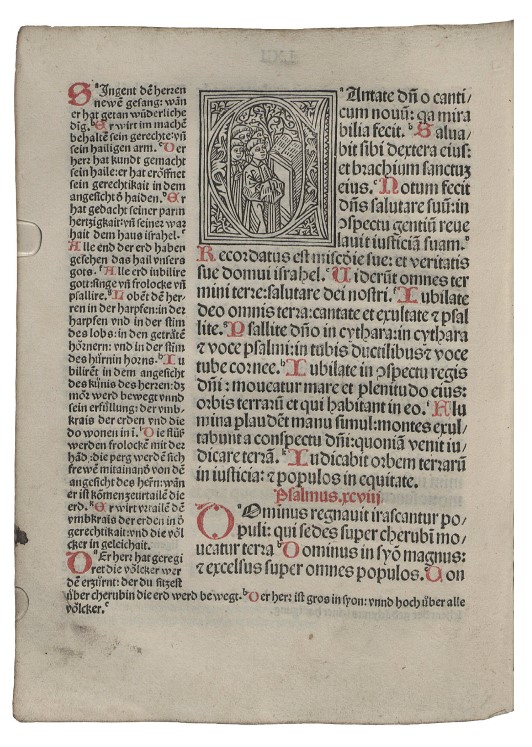 SIngent dē herren
newē gesang: wān
er hat getan wūderliche
dīg. Er wirt im machē
behaltē sein gerechte: vn̄
sein hailigen arm. Der
herr hat kundt gemacht
sein haile: er hat eröffnet
sein gerechtikait in dem
angesicht ð haiden. Er
hat gedacht seiner parm
hertzigkait: vn̄ seiner war
hait dem haus israhel.
Alle end der erd haben
gesehen das hail vnsers
gots. Alle erd iubilire
got: singe vn̄ frolocke vn̄
psallire. Lobēt dē her-
ren in der harpfen: in der
harpfen vnd in der stim
des lobs: in den geträtē
hörnern: vnd in der stim
des hürnin horns. Iu
bilirēt in dem angesicht
des künis des herren: dz
mör werd bewegt vnnd
sein erfüllung: der vmb-
krais der erden vnd die
do wonen in ī. Die flüs
werden frolockē mit der
hād: die perg werdē sich
frewē mitainand von dē
angesicht des herrn: wān
er ist kömen zeurtailē die
erd. Er wirt vrtailē dē
vmbkrais der erden in ð
gerechtikait: vnd die völ
cker in geleichait.
DEr herr hat geregi
ret die völcker wer
dē erzürnt: der du sitzest
über cherubin die erd werd bewegt. Der herr ist gros in syon: vnnd hoch über alle
völcker.
Antate dn̄o canti-
cum nouū: qa mira
bilia fecit. Salua-
bit sibi dextera eius:
et brachium sanctuz
eius. Notum fecit
dn̄s salutare suū: in
ꝯspectu gentiū reue
lauit iusticiā suam.
Recordatus est mīscðie sue: et veritatis
sue domui israhel. Uiderūt omnes ter
mini terre: salutare dei nostri. Iubilate
deo omnis terra: cantate et exultate ⁊ psal
lite. Psallite dn̄o in cythara: in cythara
⁊ voce psalmi: in tubis ductilibus ⁊ voce
tube cornee. Iubilate in ꝯspectu regis
dn̄i: moueatur mare et plenitudo eius:
orbis terrarū et qui habitant in eo. Flu
mina plaudēt manu simul: montes exul-
tabunt a conspectu dn̄i: quoniā venit iu-
dicare terrā. Iudicabit orbem terrarū
in iusticia: ⁊ populos in equitate.
Psalmus. xcviij
DOminus regnauit irascantur po-
puli: qui sedes super cherubī mo-
ueatur terra Dominus in syō magnus:
⁊ excelsus super omnes populos. Con